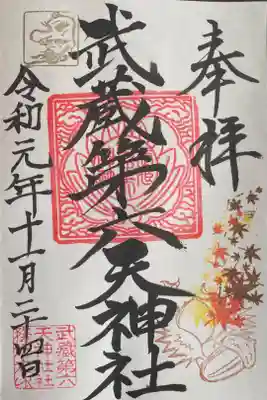 奉拝
武蔵第六天神社
令和元年十一月二十四日
武蔵第六
天神社社